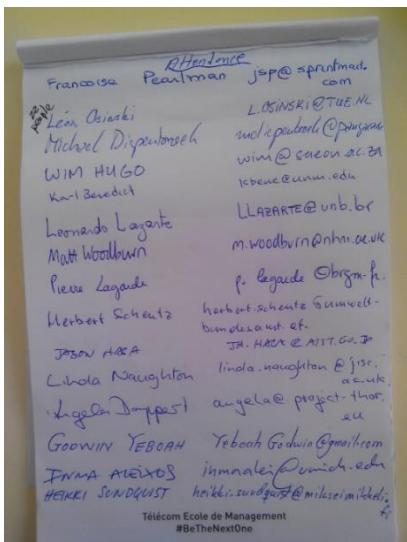 Attendance
Francoise Pearlman jsp@sprintmail.
com
22
people
Léon Osinski L.OSINSKI@TUE.NL
Michael Diepenbroek
WIM HUGO wim@saeon.ac.za
Karl Benedict kbene@unm.edu
Leonardo Lazarte LLAZARTE@unb.br
Matt Woodburn m.woodburn@nhm.ac.uk
Pierre Lagarde p.lagarde@brgm.fr.
Herbert Schentz herbert.schentz@umwelt-
bundesamt.at.
JASON HAGA JH.HAGA@AIST.GO.JP
Linda Naughton linda.naughton@jisc.
ac.uk
Angela Dappert angela@project-thor.
eu
GODWIN YEBOAH Yeboah.Godwin@gmail.com
INMA ALEIXOS inmaalei@umich.edu
HEIKKI SUNDQUIST
fi
Télécom Ecole de Management
#BeTheNextOne